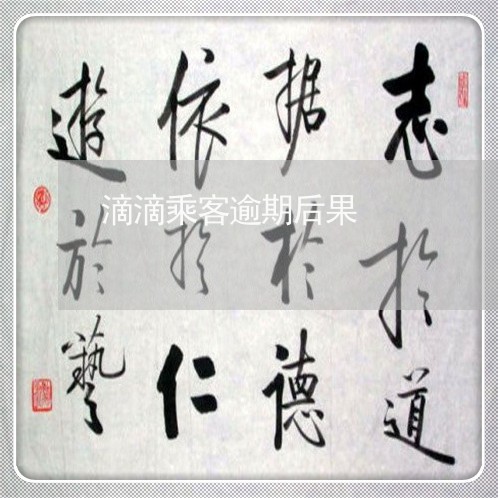 志扵道
据扵德
依扵仁
遊於藝
滴滴乘客逾期后果